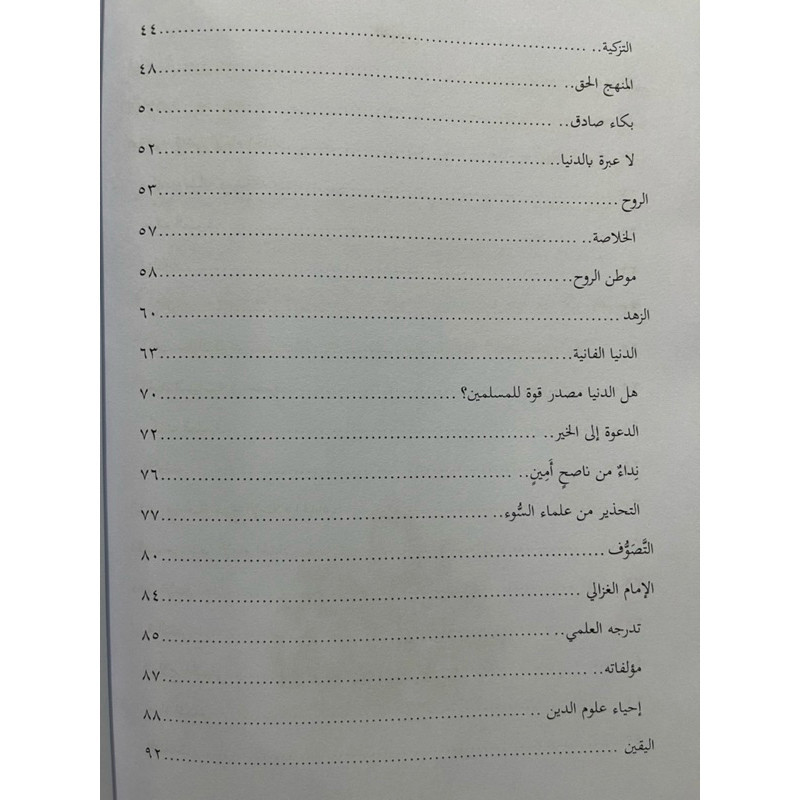 التزكية.. ٤٤
المنهج الحق.. ٤٨
بكاء صادق.. ٥٠
لا عبرة بالدنيا.. ٥٢
الروح ٥٣
الخلاصة.. ٥٧
موطن الروح.. ٥٨
الزهد ٦٠
الدنيا الفانية.. ٦٣
هل الدنيا مصدر قوة للمسلمين؟ ٧٠
الدعوة إلى الخير.. ٧٢
نِداءٌ من ناصحٍ أَمِينٍ.. ٧٦
التحذير من علماء السُّوء.. ٧٧
التَّصَوُّف ٨٠
الإمام الغزالي ٨٤
تدرجه العلمي.. ٨٥
مؤلفاته.. ٨٧
إحياء علوم الدين .. ٨٨
اليقين ٩٢